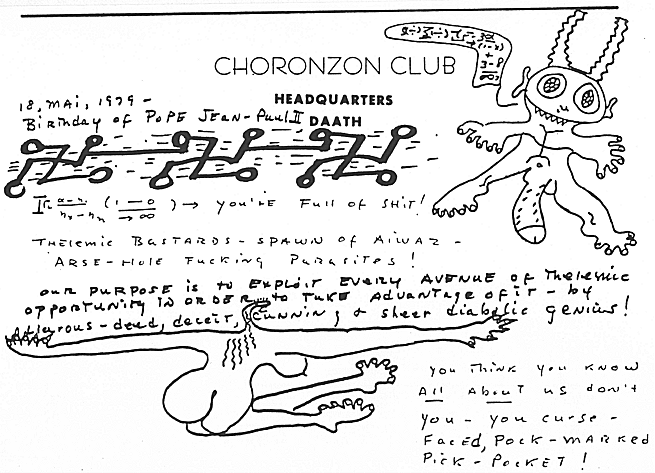 CHORONZON CLUB
HEADQUARTERS
DAATH
18, MAI, 1979 -
Birthday of POPE JEAN-Paul II
→ you're Full of SHIT!
THELEMIC BASTARDS - SPAWN of AIWAZ -
ARSE-HOLE FUCKING PARASITES!
OUR PURPOSE is to EXPLOIT EVERY AVENUE of Thelemic
OPPORTUNITY IN ORDER to TAKE Advantage of it - by
deceit, CUNNING & sheer diabolic genius!
you THINK you KNOW
All About us don't
You - you curse -
FACED, POCK-MARKED
PICK-POCKET!